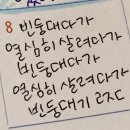 8 빈둥대다가
열심히 살려다가
빈둥대다가
열심히 살려다가
빈둥대기 고잼